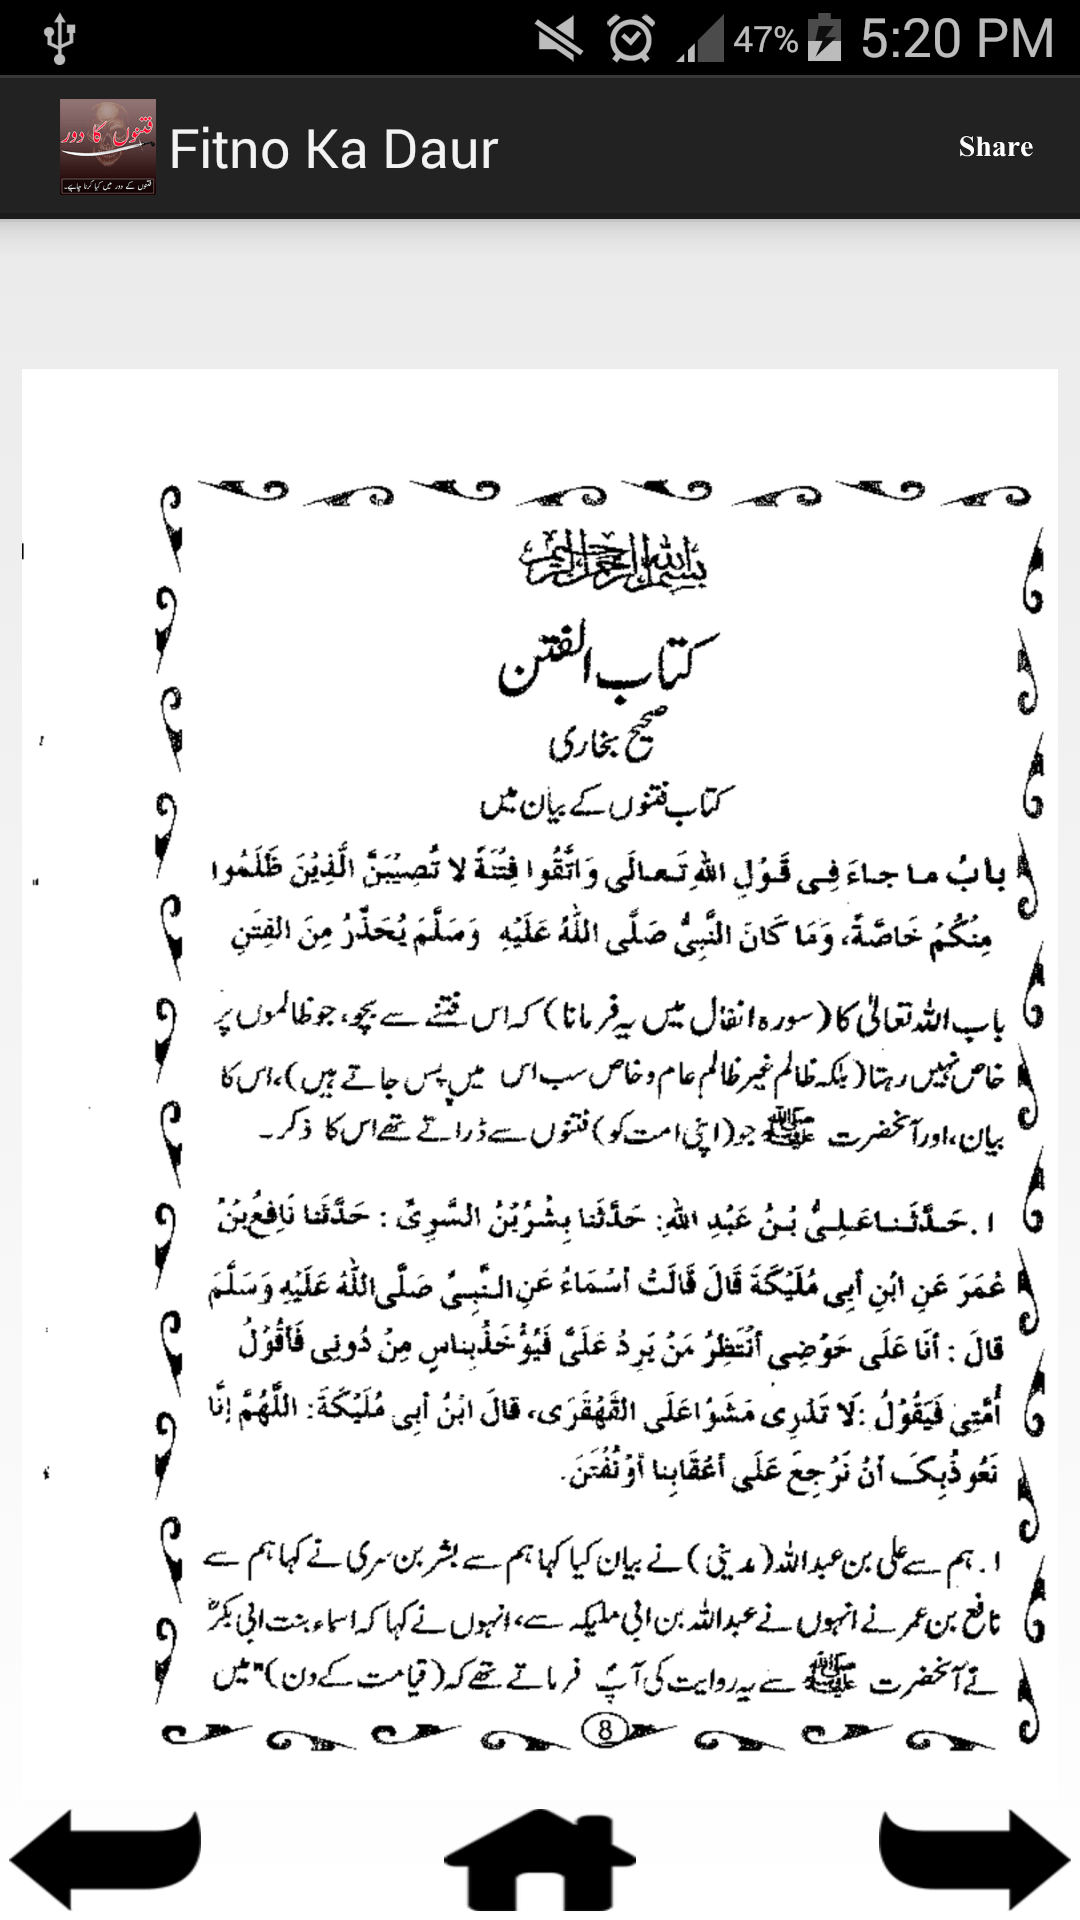 47% 5:20 PM
فتنوں کا دور
فتنوں کے دور میں کیا کرنا چاہیے۔
Fitno Ka Daur
Share
بسم الله الرحمن الرحيم
کتاب الفتن
صحیح بخاری
کتاب فتنوں کے بیان میں
بابُ ما جاءَ فِی قَوْلِ اللّٰهِ تَعالَی وَاتَّقُوا فِتْنَةً لا تُصِیْبَنَّ الَّذِیْنَ ظَلَمُوا
مِنْکُمْ خَاصَّةً، وَمَا کَانَ النَّبِیُّ صَلَّی اللّٰهُ عَلَیْهِ وَسَلَّمَ یُحَذِّرُ مِنَ الْفِتَنِ
باب اللہ تعالیٰ کا (سورہ انفال میں یہ فرمانا) کہ اس فتنے سے بچو، جو ظالموں پر
خاص نہیں رہتا (بلکہ ظالم غیر ظالم عام و خاص سب اس میں پس جاتے ہیں)، اس کا
بیان، اور آنحضرت ﷺ جو (اپنی امت کو) فتنوں سے ڈراتے تھے اس کا ذکر۔
۱. حَدَّثَنا عَلِیُّ بْنُ عَبْدِ اللّٰهِ: حَدَّثَنا بِشْرُبْنُ السَّرِیِّ: حَدَّثَنا نَافِعُ بْنُ
عُمَرَ عَنِ ابْنِ أبِی مُلَیْکَةَ قَالَ قَالَتْ أسْمَاءُ عَنِ النَّبِیِّ صَلَّی اللّٰهُ عَلَیْهِ وَسَلَّمَ
قالَ: أنَا عَلَی حَوْضِی أنْتَظِرُ مَنْ یَرِدُ عَلَیَّ فَیُؤْخَذُ بِناسٍ مِنْ دُونِی فَأقُوْلُ
أُمَّتِی فَیَقُوْلُ: لَا تَدْرِی مَشَوْا عَلَی الْقَهْقَرَی، قالَ ابْنُ أبِی مُلَیْکَةَ: اللّٰهُمَّ إنَّا
نَعُوذُ بِکَ أنْ نَرْجِعَ عَلَی أعْقَابِنا أوْ نُفْتَنَ.
۱. ہم سے علی بن عبداللہ (مدینی) نے بیان کیا کہا ہم سے بشر بن سری نے کہا ہم سے
نافع بن عمر نے انہوں نے عبداللہ بن ابی ملیکہ سے، انہوں نے کہا کہ اسماء بنت ابی بکرؓ
نے آنحضرت ﷺ سے یہ روایت کی آپؐ فرماتے تھے کہ (قیامت کے دن) "میں
8